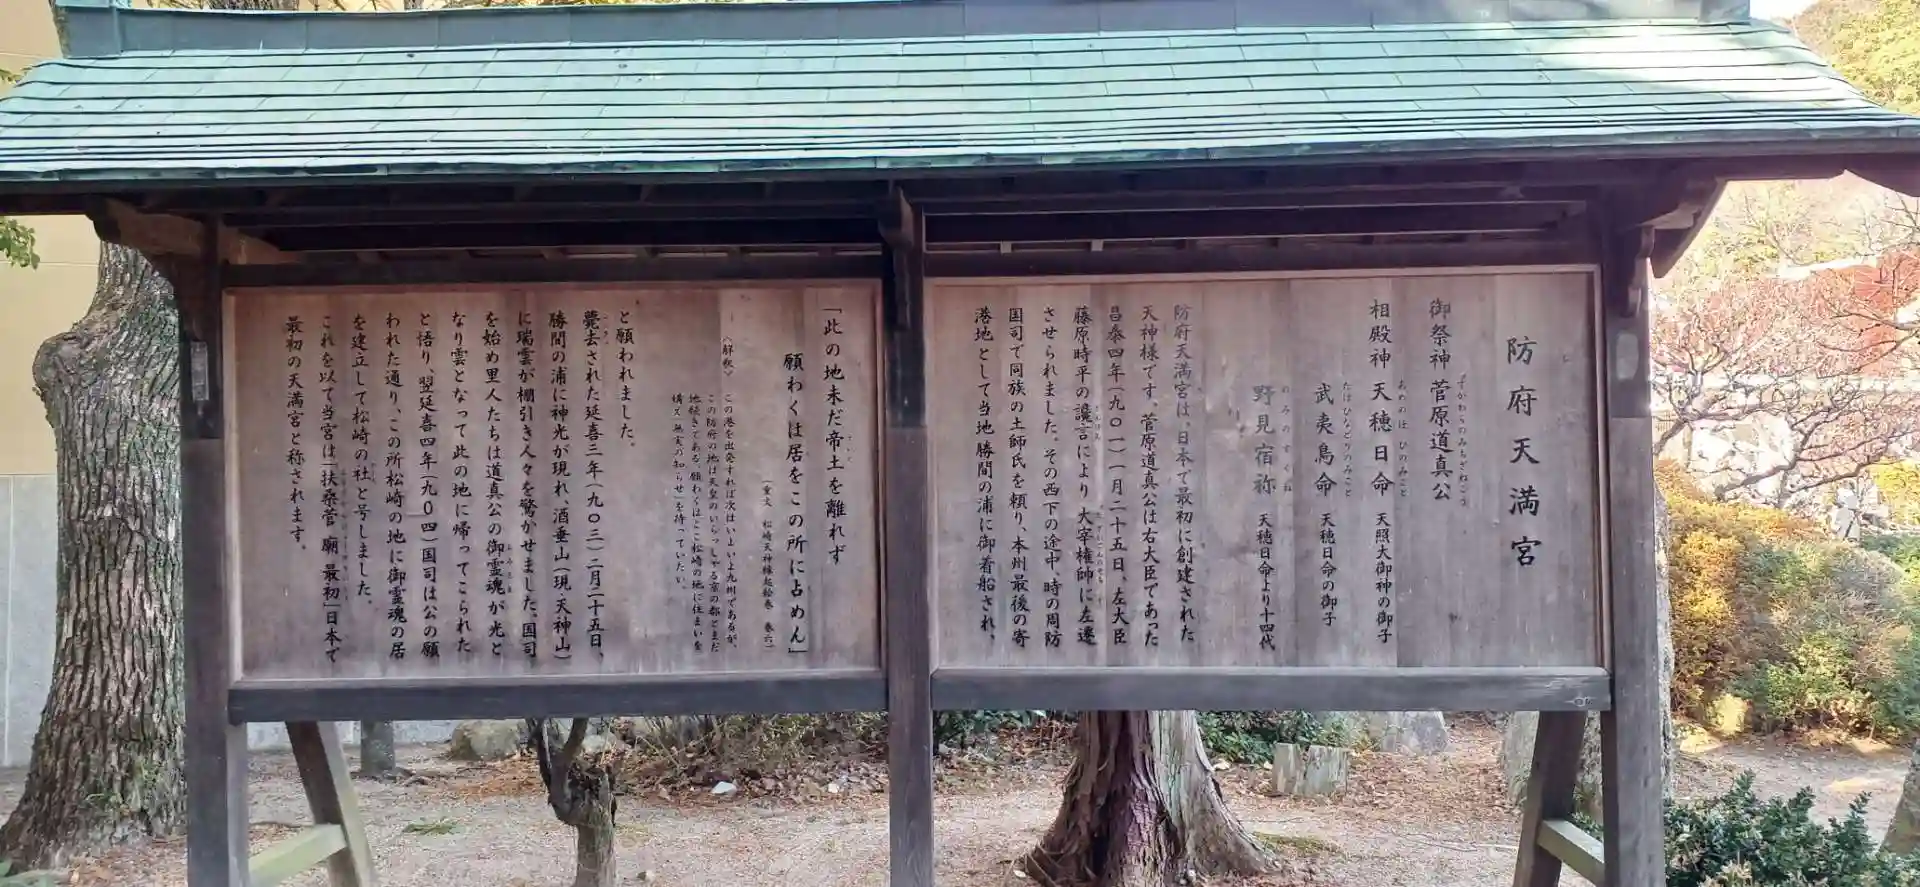 防府天満宮
御祭神 菅原道真公
相殿神 天穂日命 天照大御神の御子
武夷鳥命 天穂日命の御子
野見宿祢 天穂日命より十四代
防府天満宮は、日本で最初に創建された
天神様です。菅原道真公は右大臣であった
昌泰四年(九〇一)一月二十五日、左大臣
藤原時平の讒言により大宰権帥に左遷
させられました。その西下の途中、時の周防
国司で同族の土師氏を頼り、本州最後の寄
港地として当地勝間の浦に御着船され、
「此の地未だ帝土を離れず
願わくは居をこの所に占めん」
(重文 松崎天神縁起絵巻 巻六)
〈解釈〉 この港を出発すれば次はいよいよ九州であるが、
この防府の地は天皇のいらっしゃる京の都とまだ
地続きである 願わくはここ松崎の地に住まいを
構え無実の知らせを待っていたい。
と願われました。
薨去された延喜三年(九〇三)二月二十五日、
勝間の浦に神光が現れ、酒垂山(現 天神山)
に瑞雲が棚引き人々を驚かせました。国司
を始め里人たちは道真公の御霊魂が光と
なり雲となって此の地に帰ってこられた
と悟り、翌延喜四年(九〇四)国司は公の願
われた通り、この所松崎の地に御霊魂の居
を建立して松崎の社と号しました。
これを以て当宮は「扶桑菅廟最初」日本で
最初の天満宮と称されます。